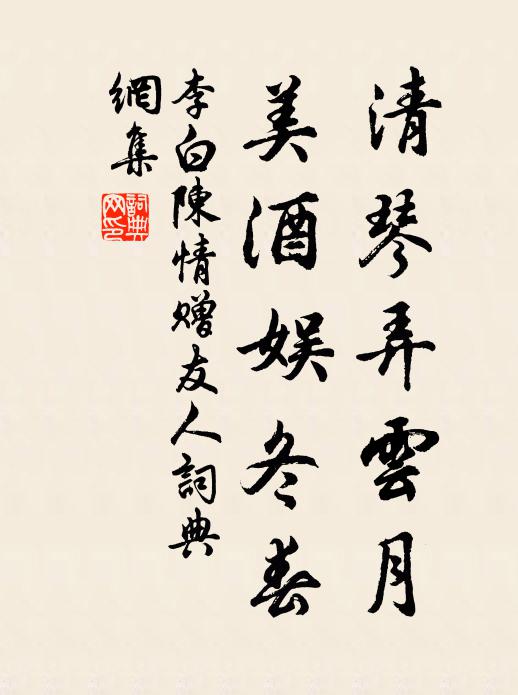 清琴弄雲月
美酒娱冬春
李白陳情贈友人詞典
網集
詞典
网印